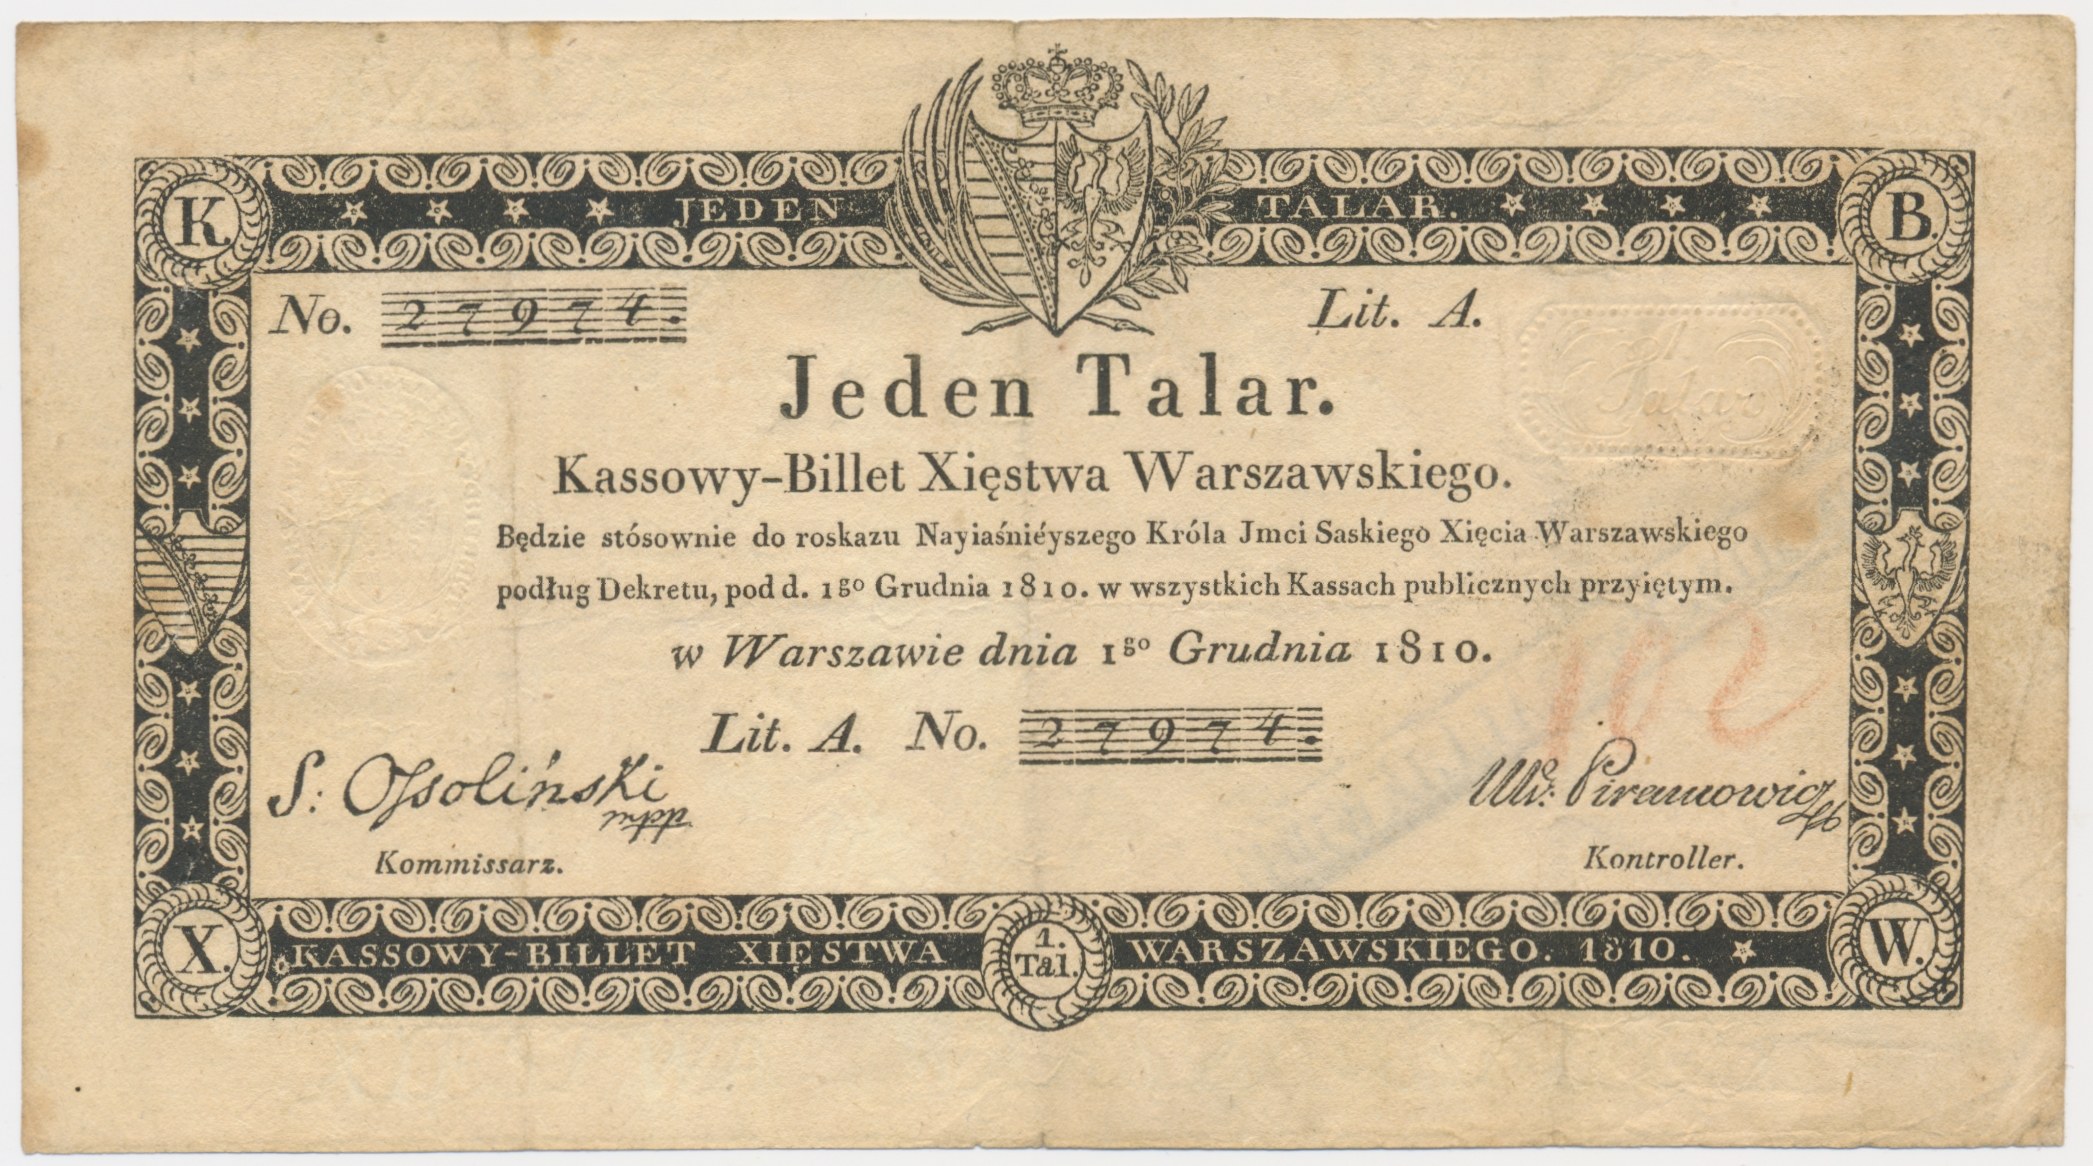 K
JEDEN TALAR.
B.
No. 27974. Lit. A.
1
Talar
Jeden Talar.
Kassowy-Billet Xięstwa Warszawskiego.
Będzie stósownie do roskazu Nayiaśniéyszego Króla Jmci Saskiego Xięcia Warszawskiego
podług Dekretu, pod d. 1go Grudnia 1810. w wszystkich Kassach publicznych przyiętym.
w Warszawie dnia 1go Grudnia 1810.
102
Lit. A. No. 27974.
S: Ossoliński
mpp
Kommissarz.
Piramowicz
Kontroller.
X.
KASSOWY-BILLET XIĘSTWA
1.
Tal.
WARSZAWSKIEGO. 1810.
W.